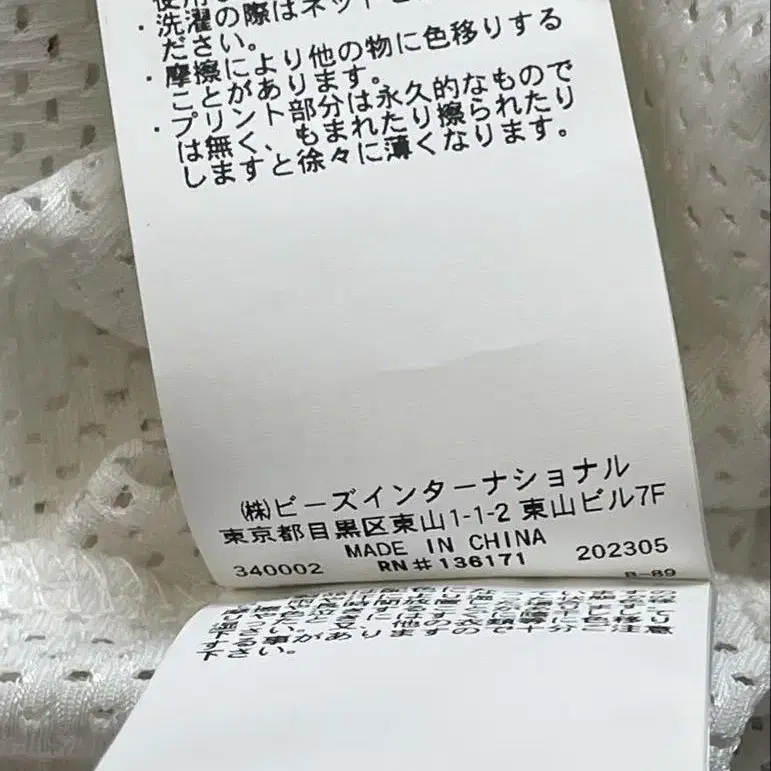 ・洗濯の際はネット
ださい。
・摩擦により他の物に色移りする
ことがあります。
・プリント部分は永久的なもので
は無く、もまれたり擦られたり
しますと徐々に薄くなります。
㈱ビーズインターナショナル
東京都目黒区東山1-1-2 東山ビル7F
MADE IN CHINA
340002 RN#136171 202305
B-89
下さい。又、他の衣類等に色移り
する事がありますので十分ご注意
下さい。